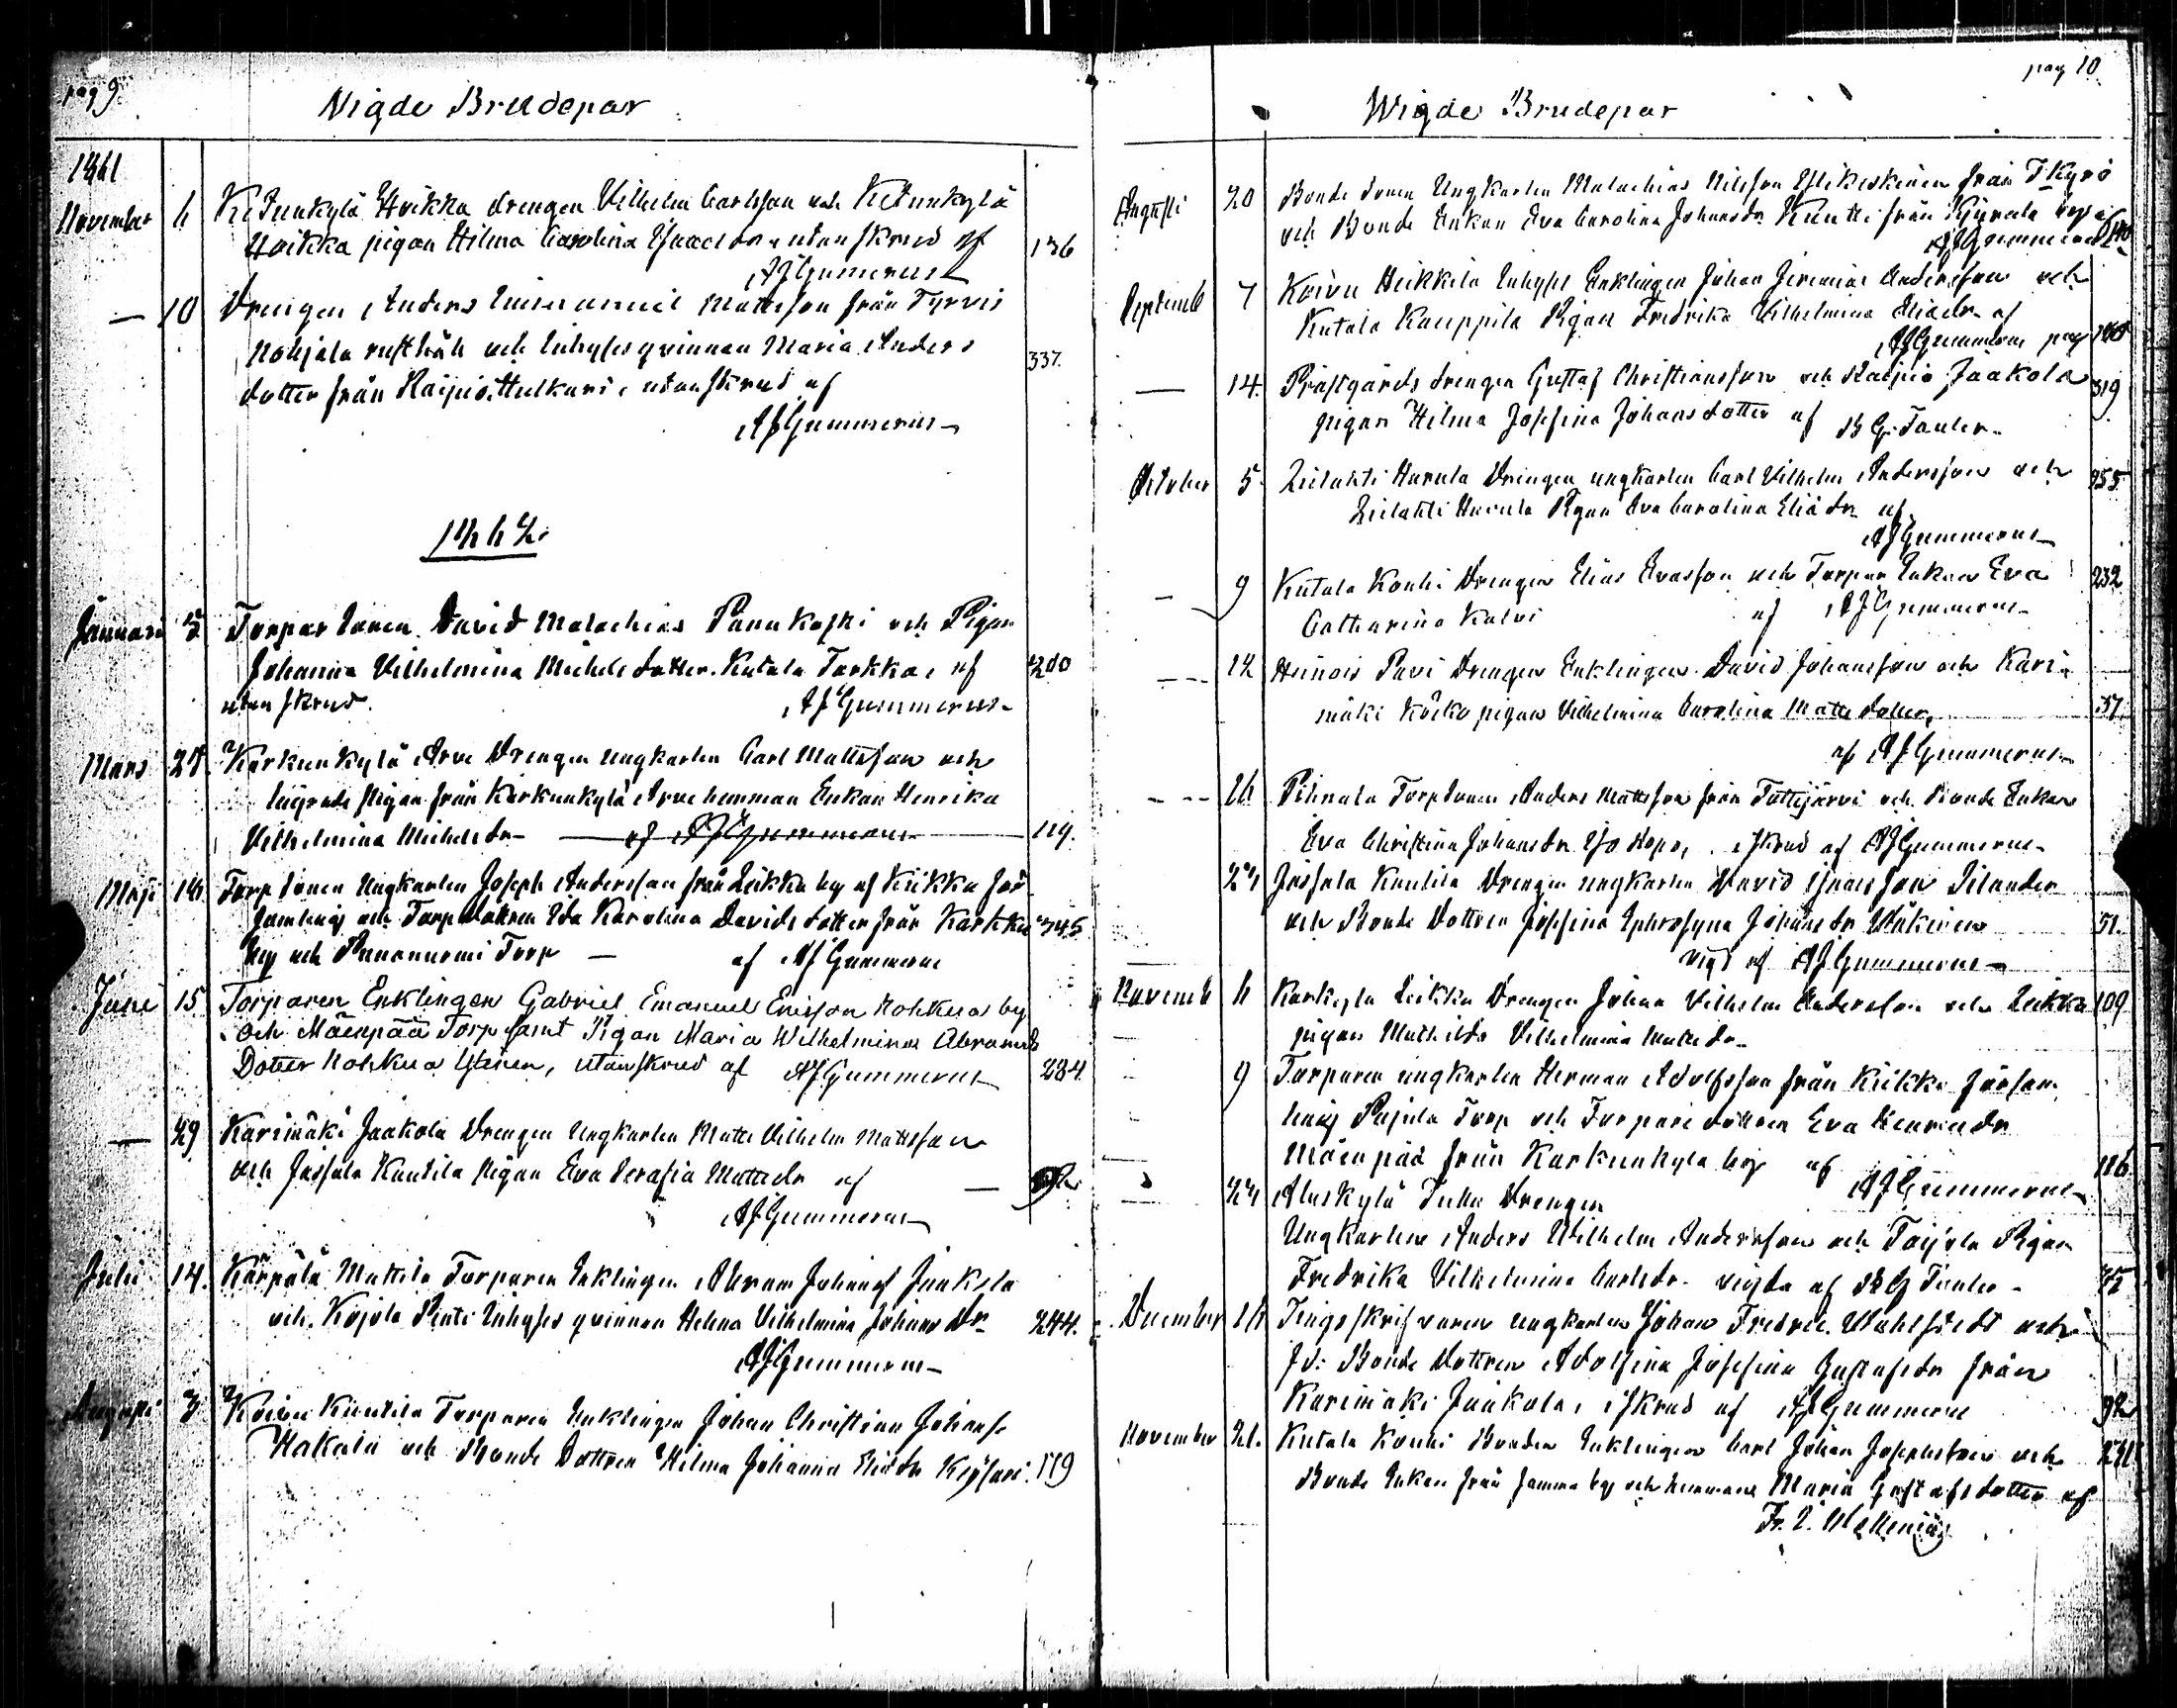 pag 9
Wigde Brudepar
1861
November 6 Ketunkylä Hoikka drengen Vilhelm Carlsson och Ketunkylä
Hoikka pigan Hilma Carolina Isaacsdr utan skrud af 136
AJGummerus
— 10 Drengen Anders Emanuel Mattsson från Tyrvis
Nohjala rusthåll och Inhyses qvinnan Maria Anders 337.
dotter från Raipio Hulkari, utan skrud af
AJGummerus
1862.
Januari 5 Torpar Sonen David Malachias Panukoski och Pigan
Johanna Vilhelmina Michelsdotter Kutala Torkka, af 200
utan skrud. AJGummerus
Mars 28. Karkunkylä Arve Drengen Ungkarlen Carl Mattsson och
lägrade Pigan från Karkunkylä Arve hemman Enkan Henrika
Vilhelmina Michelsdr — af AJGummerus 119.
Maji 18. Torp Sonen Ungkarlen Joseph Andersson från Leikku by af Kiikka för
samling och Torp dottren Ida Karolina Davidsdotter från Karkku 345
by och Punanurmi Torp — af AJGummerus
Juni 15 Torparen Enklingen Gabriel Emanuel Ericsson Nohkua by
och Mäenpää Torp samt Pigan Maria Wilhelmina Abrams
Dotter Nohkua Ylinen, utan skrud af AJGummerus 284
— 29 Karimäki Jaakola Drengen Ungkarlen Matts Vilhelm Mattsson
och Jussala Kautila Pigan Eva Serafia Mattsdr af — 92
AJGummerus
Julii 14. Kärpälä Mattila Torparen Enklingen Abram Johansf Jaakola
och Kojola Pentti Inhyses qvinnan Helena Vilhelmina Johans Dr 244.
AJGummerus
Augusti 3 Koivu Kuutila Torparen Enklingen Johan Christian Johansf
Hakala och Bonde Dottren Hilma Johanna Eliædr 119
pag 10
Wigde Brudepar
Augusti 20 Bonde Sonen Ungkarlen Malachias Nilsson från T Kyrö
och Bonde Enkan Eva Carolina Johansdr från by af
AJGummerus
Septemb 7 Koivu Heikkilä Inhyses Enklingen Johan Jeremias Andersson och
Kutala Kauppila Pigan Fredrika Vilhelmina Eliædr af
AJGummerus pag
— 14. Prästgårds drengen Gustaf Christiansson och Raipio Jaakola 319
pigan Hilma Josefina Johansdotter af B G Tauler
October 5 Liulahti Harula Drengen ungkarlen Carl Vilhelm Andersson och 355
Liulahti Harula Pigan Eva Carolina Eliædr af
AJGummerus
— 9 Kutala Kouhi Drengen Elias Evasson och Torpar Enkan Eva 232
Catharina Kalvi af AJGummerus
— 12 Heinois Pavi Drengen Enklingen David Johansson och Kari-
mäki Köckö pigan Vilhelmina Carolina Mattsdotter, 37.
af AJGummerus
— 26 Torpsonen Anders Mattsson från Tottijärvi och Bonde Enkan
Eva Christina Johansdr i skrud af AJGummerus
24 Jussala Kautila Drengen ungkarlen David Isacsson Silander
och Bonde Dottren Josefina Ephrosyna Johansdr 51.
vigd af AJGummerus
Novemb 6 Karkyla Leikku Drengen Johan Vilhelm Andersson och Leikku 109
pigan Mathilda Vilhelmina Mattsdr
9 Torparen ungkarlen Herman Adolfsson från Kiikka försam
ling Pajula Torp och Torpare dottren Eva Henricsdr
Mäenpää från Karkunkyla by af AJGummerus 116
24 Aluskylä Juha Drengen
Ungkarlen Anders Wilhelm Andersson och Pigan
Fredrika Vilhelmina Carlsdr vigda af B G Tauler
December 28 Tingsskrifvaren ungkarlen Johan Fredric Wahlstedt och
fd: Bonde Dottren Adolfina Josefina Gustafsdr från
Karimäki Jaakola, i skrud af AJGummerus 92
November 21. Kutala Kouhi Bonden Enklingen Carl Johan Josephsson och
Bonde Enkan från samma by och hemman Maria Gustafsdotter af
Fr.